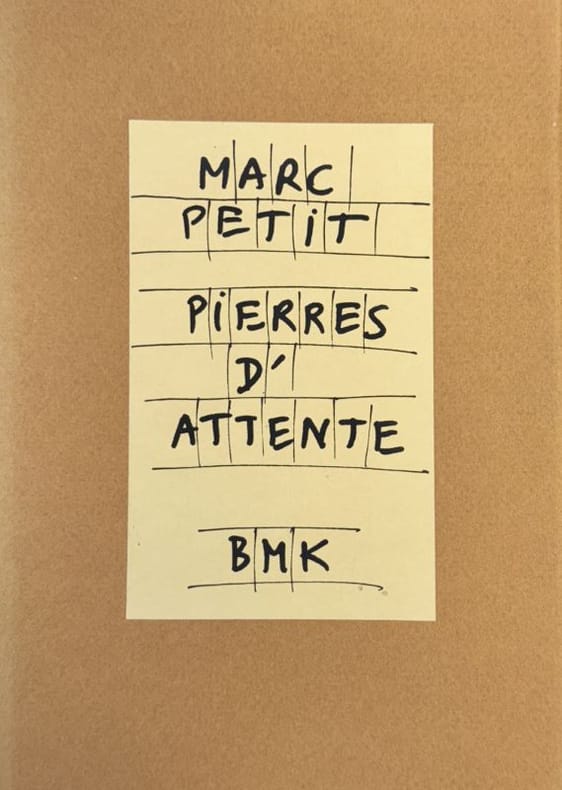 MARC
PETiT
PiERRES
D'
ATTENTE
BMK